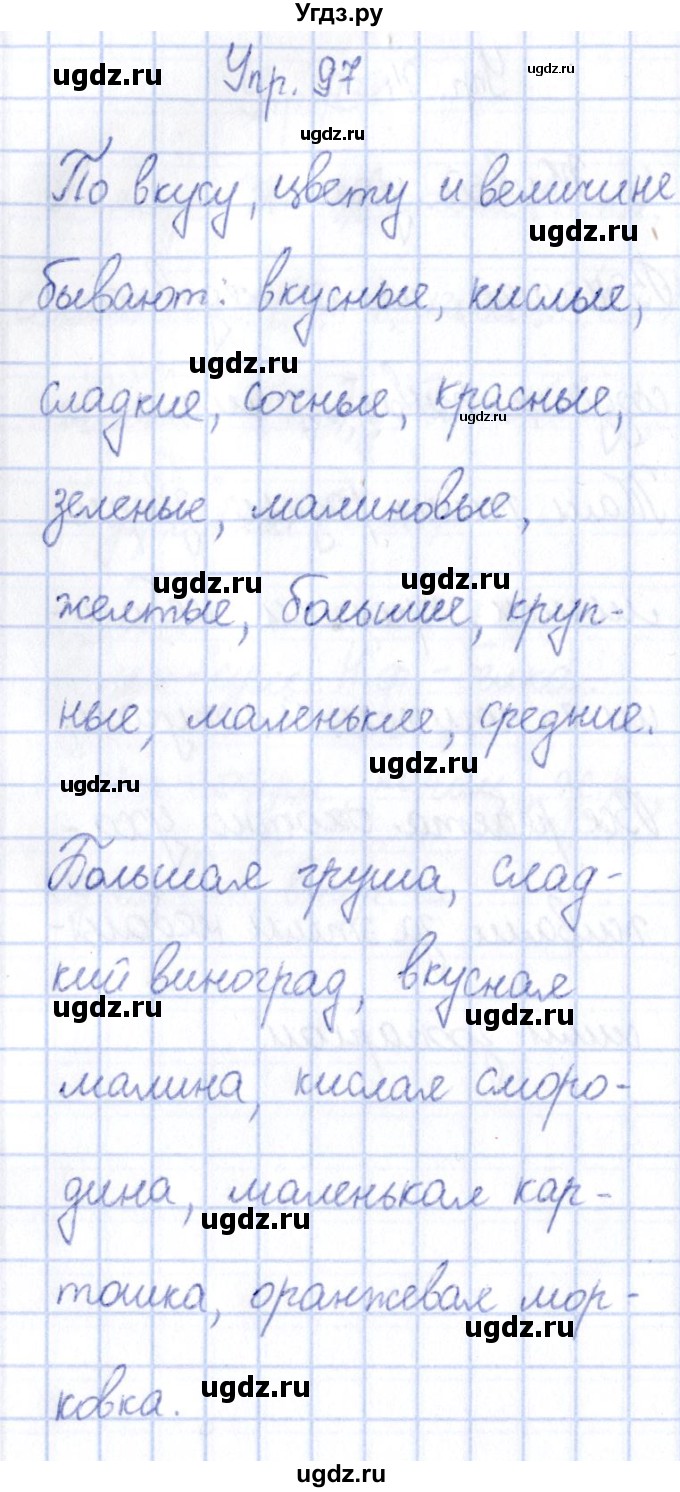 Угдз.ру
ugdz.ru Упр. 97 ugdz.ru
ugdz.ru
По вкусу, цвету и величине
ugdz.ru
бывают: вкусные, кислые,
ugdz.ru
сладкие, сочные, красные,
ugdz.ru
зеленые, малиновые,
ugdz.ru ugdz.ru
желтые, большие, круп-
ные, маленькие, средние.
ugdz.ru
ugdz.ru
Большая груша, слад-
кий виноград, вкусная
ugdz.ru ugdz.ru
малина, кислая сморо-
дина, маленькая кар-
ugdz.ru
тошка, оранжевая мор-
ugdz.ru
ugdz.ru
ковка.
ugdz.ru